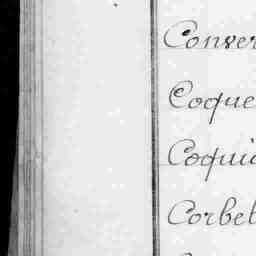 Conver
Coque
Coqui
Corbet